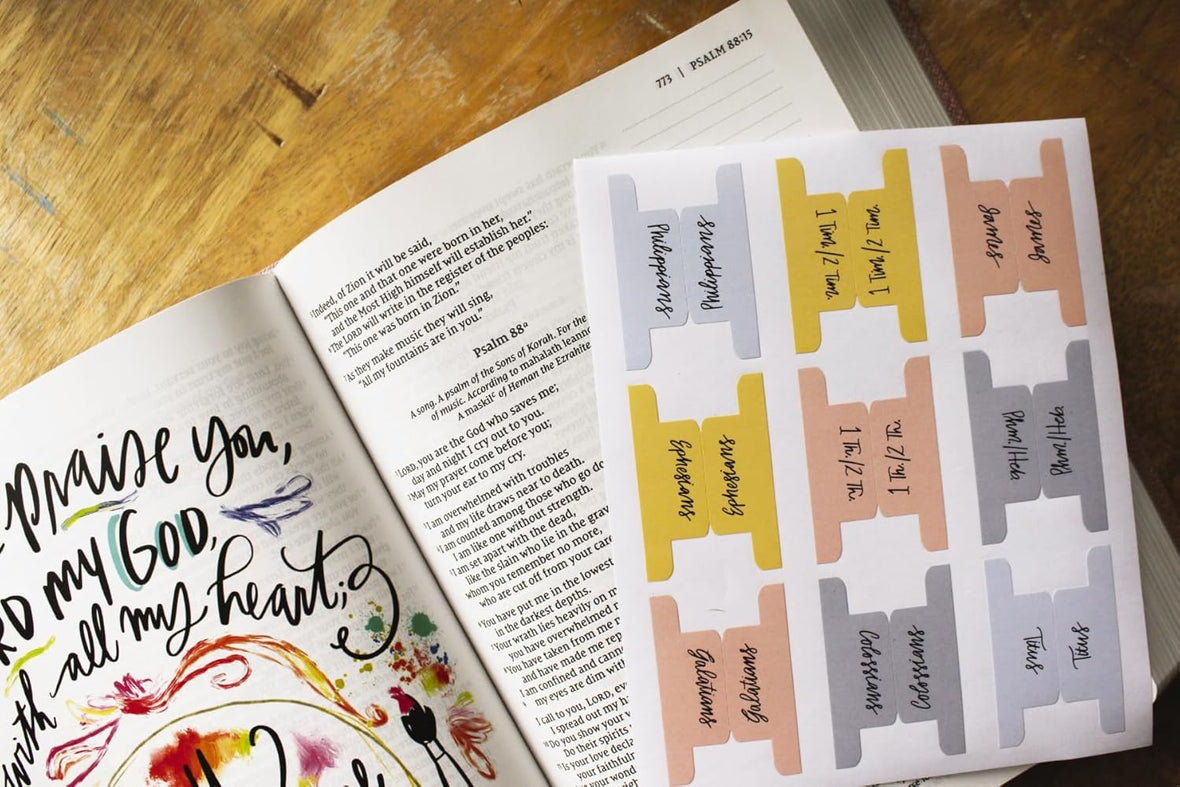 praise you,
my God,
all my heart;
with
773 | PSALM 88:15
Indeed, of Zion it will be said,
“This one and that one were born in her,
and the Most High himself will establish her.”
The LORD will write in the register of the peoples:
“This one was born in Zion.”
As they make music they will sing,
“All my fountains are in you.”
Psalm 88a
A song. A psalm of the Sons of Korah. For the
of music. According to mahalath leannoth
A maskilc of Heman the Ezrahite
LORD, you are the God who saves me;
day and night I cry out to you.
May my prayer come before you;
turn your ear to my cry.
I am overwhelmed with troubles
and my life draws near to death.
I am counted among those who go do
I am like one without strength.
I am set apart with the dead,
like the slain who lie in the grav
whom you remember no more,
who are cut off from your care
You have put me in the lowest
in the darkest depths.
Your wrath lies heavily on m
you have overwhelmed
You have taken from me
and have made me rep
I am confined and canno
my eyes are dim with
I call to you, LORD, ev
I spread out my h
Do you show your
Do their spirits
Is your love decla
your faithful
your wond
Philippians
Philippians
1 Tim./2 Tim.
1 Tim./2 Tim.
James
James
Ephesians
Ephesians
1 Th./2 Th.
1 Th./2 Th.
Phlm/Heb
Phlm/Heb
Galatians
Galatians
Colossians
Colossians
Titus
Titus